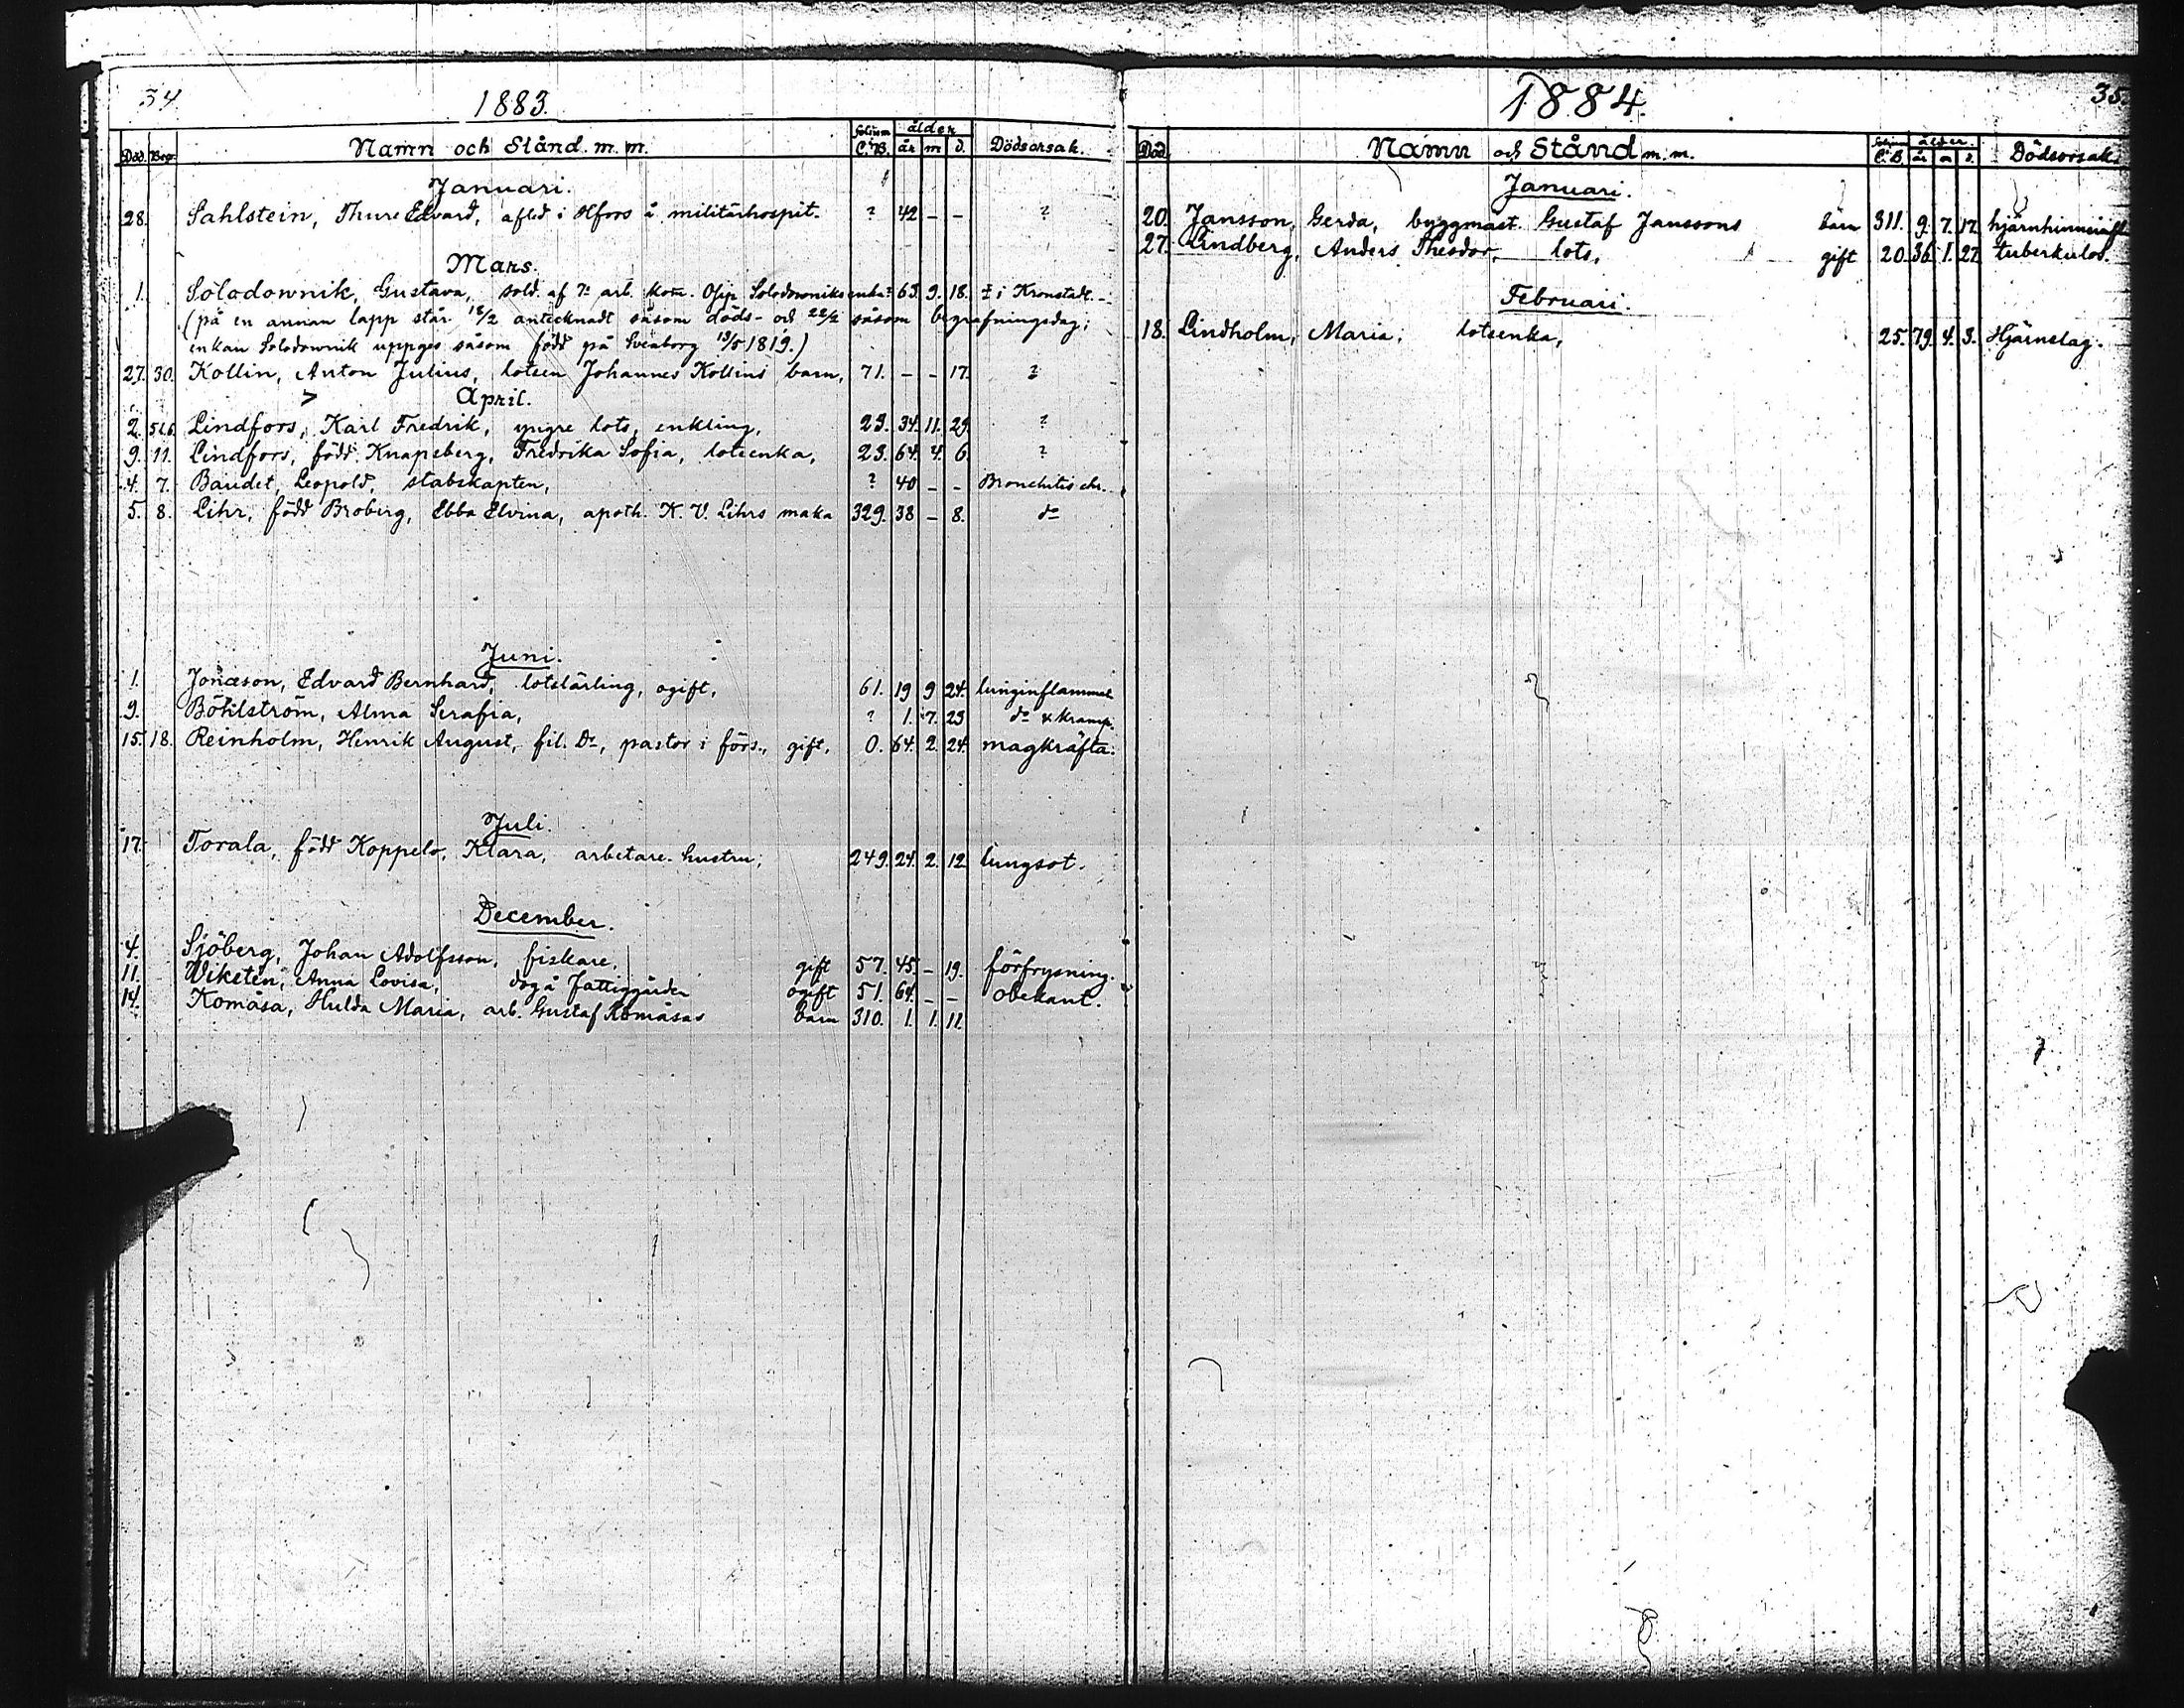 34.
1883.
Död. Begr. Namn och Stånd. m. m. Folium C.B. ålder år m d. Dödsorsak.
Januari.
28. Sahlstein, Thure Edvard, afled i Hfors å militärhospit. ? 42 – – ?
Mars.
1. Solodownik, Gustava, sold. af 7: arb. kom. Osip Solodowniks enka ? 63. 9. 18. ‡ i Kronstadt.
(på en annan lapp står 18/2 antecknadt såsom döds- och 22/2 såsom begrafningsdag;
enkan Solodownik uppges såsom född på Sveaborg 13/5 1819.)
27. 30. Kollin, Anton Julius, lotsen Johannes Kollins barn, 71. – – 17. ?
April.
2. 5 l. 6. Lindfors, Karl Fredrik, yngre lots, enkling, 23. 34. 11. 29. ?
9. 11. Lindfors, född Knapsberg, Fredrika Sofia, lotsenka, 23. 64. 4. 6. ?
4. 7. Baudet, Leopold, stabskapten, ? 40 – – Bronchitis chr.
5. 8. Lihr, född Broberg, Ebba Elvina, apoth. K. V. Lihrs maka 329. 38 – 8. d:o
Juni.
1. Jonæson, Edvard Bernhard, lotslärling, ogift, 61. 19 9 24. lunginflammat
9. Böhlström, Alma Serafia, ? 1. 7. 23 d:o & kramp.
15. 18. Reinholm, Henrik August, fil. Dr, pastor i förs., gift, 0. 64. 2. 24. magkräfta.
Juli.
17. Torala, född Koppelo, Klara, arbetare-hustru; 249. 24. 2. 12 lungsot.
December.
4. Sjöberg, Johan Adolfsson, fiskare, gift 57. 45. – 19. förfrysning.
11. Wikstén, Anna Lovisa, dog å Fattiggården ogift 51. 64. – – obekant.
14. Komäsa, Hulda Maria, arb. Gustaf Komäsas barn 310. 1. 1. 11.
35.
1884.
Död. Namn och Stånd m. m. Folium C.B. ålder. år m d. Dödsorsak.
Januari.
20. Jansson, Gerda, byggmäst. Gustaf Janssons barn 311. 9. 7. 17.
27. Lindberg, Anders Theodor, lots, gift 20. 36. 1. 27. tuberkulos.
Februari.
18. Lindholm, Maria, lotsenka, 25. 79. 4. 3. Hjärnslag.